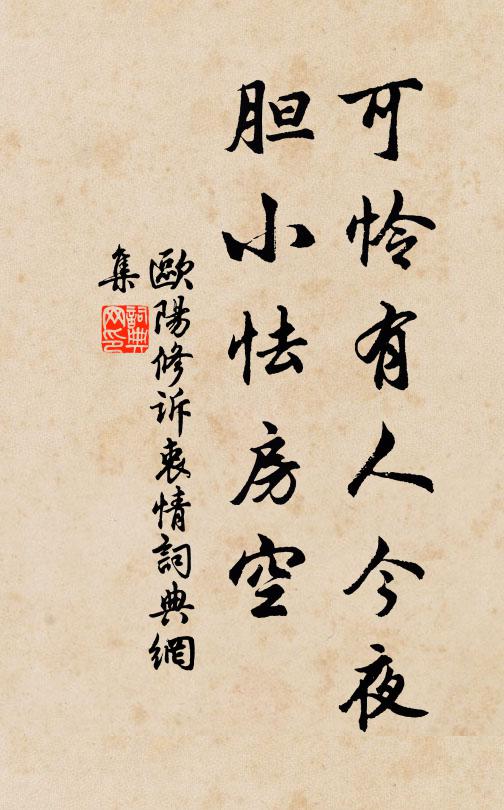 可怜有人今夜
胆小怯房空
歐陽修诉衷情詞典網
集
詞典
网印